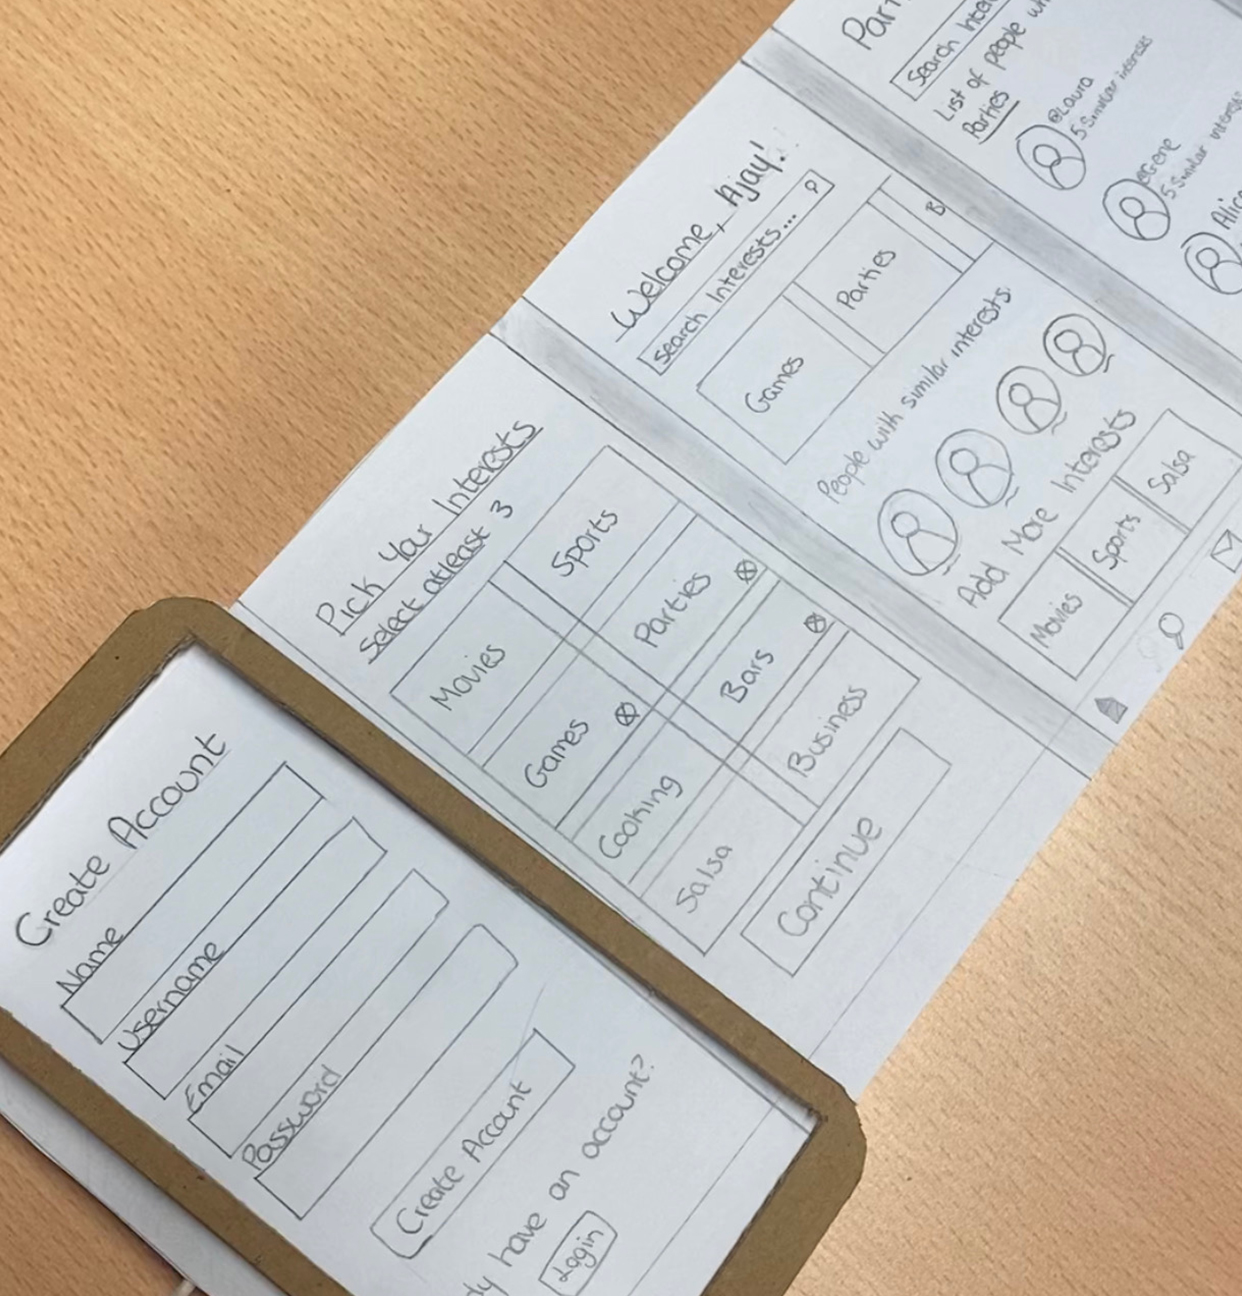 Create Account
Name
Username
Email
Password
Create Account
have an account?
Login
Pick Your Interests
Select atleast 3
Movies
Sports
Games
Parties
Cooking
Bars
Salsa
Business
Continue
Welcome, Ajay!
Search Interests...
Games
Parties
B
People with similar interests:
Add More Interests
Movies
Sports
Salsa
Search
List of people
Parties
@Laura
5 Similar interests
@Gene
5 Similar